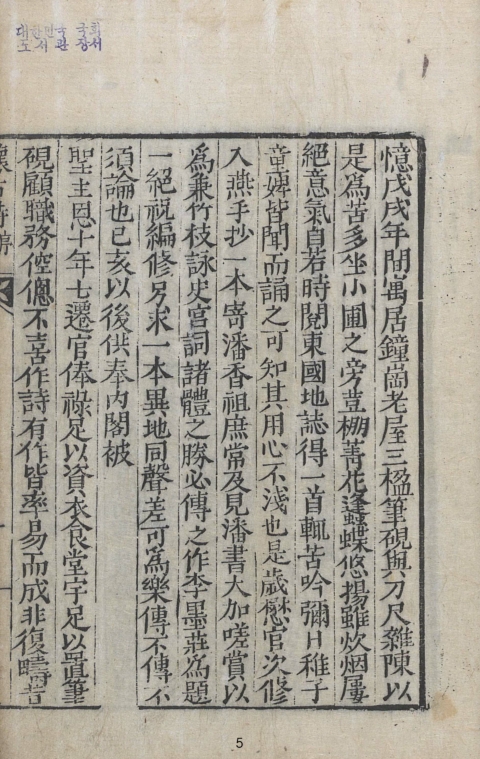 대한민국 국회
도서관 장서
憶戊戌年間寓居鐘崗老屋三楹筆硯與刀尺雜陳以
是爲苦多坐小圃之旁荳棚菁花蠭蝶悠揚雖炊烟屢
絕意氣自若時閱東國地誌得一首輒苦吟彌日稚子
童婢皆聞而誦之可知其用心不淺也是歲懋官次修
入燕手抄一本寄潘香祖庶常及見潘書大加嗟賞以
爲兼竹枝詠史宮詞諸體之勝必傳之作李墨莊爲題
一絕祝編修另求一本異地同聲差可爲樂傳不傳不
須論也已亥以後供奉內閣被
聖主恩十年七遷官俸祿足以資衣食堂宇足以置筆
硯顧職務倥傯不喜作詩有作皆率易而成非復疇昔
5